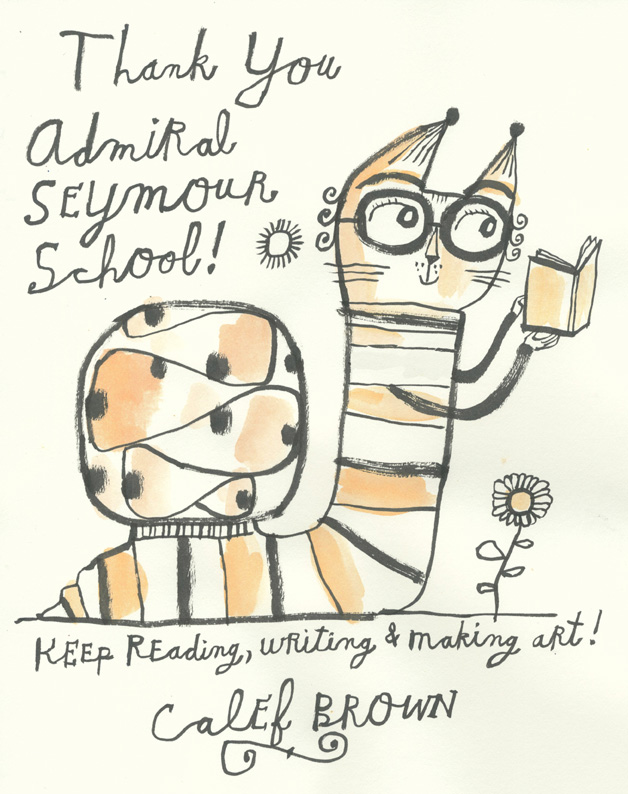 Thank You
AdmiRal
SEymouR
School!
KEEp REading, wRiting & making aRt!
CalEf BROWN